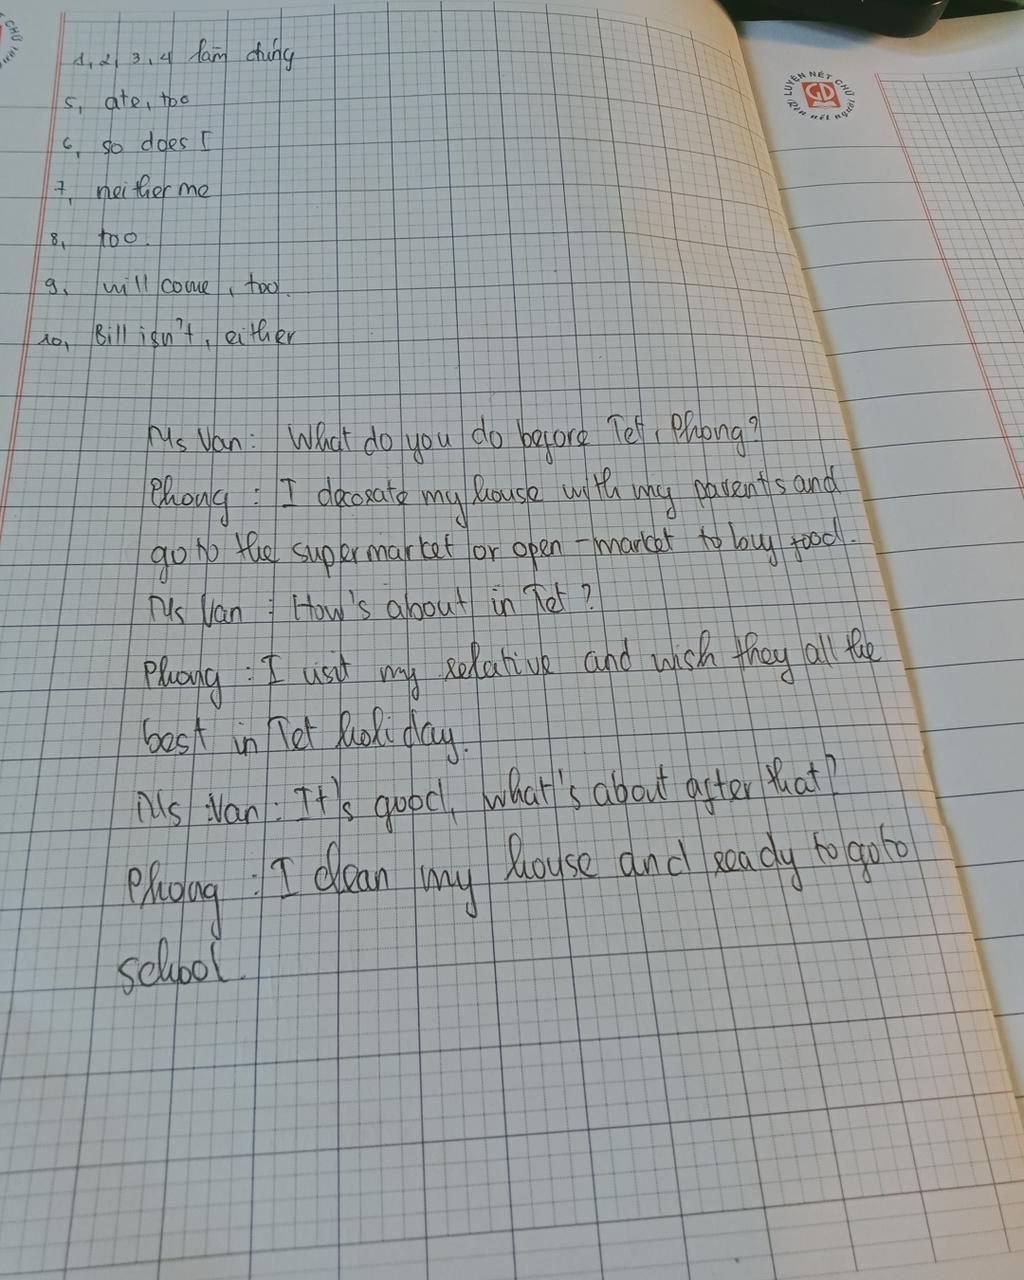 1, 2, 3, 4 làm chung
5, ate, too
6, so does I
7, neither me
8, too.
9, will come, too.
10, Bill isn't, either
LUYỆN NÉT CHỮ
GD
Rèn nết người
Ms Van: What do you do before Tet, Phong?
Phong: I decorate my house with my parents and
go to the supermarket or open-market to buy food.
Ms Van: How's about in Tet?
Phong: I visit my relative and wish they all the
best in Tet holiday.
Ms Van: It's good, what's about after that?
Phong: I clean my house and ready to go to
school.